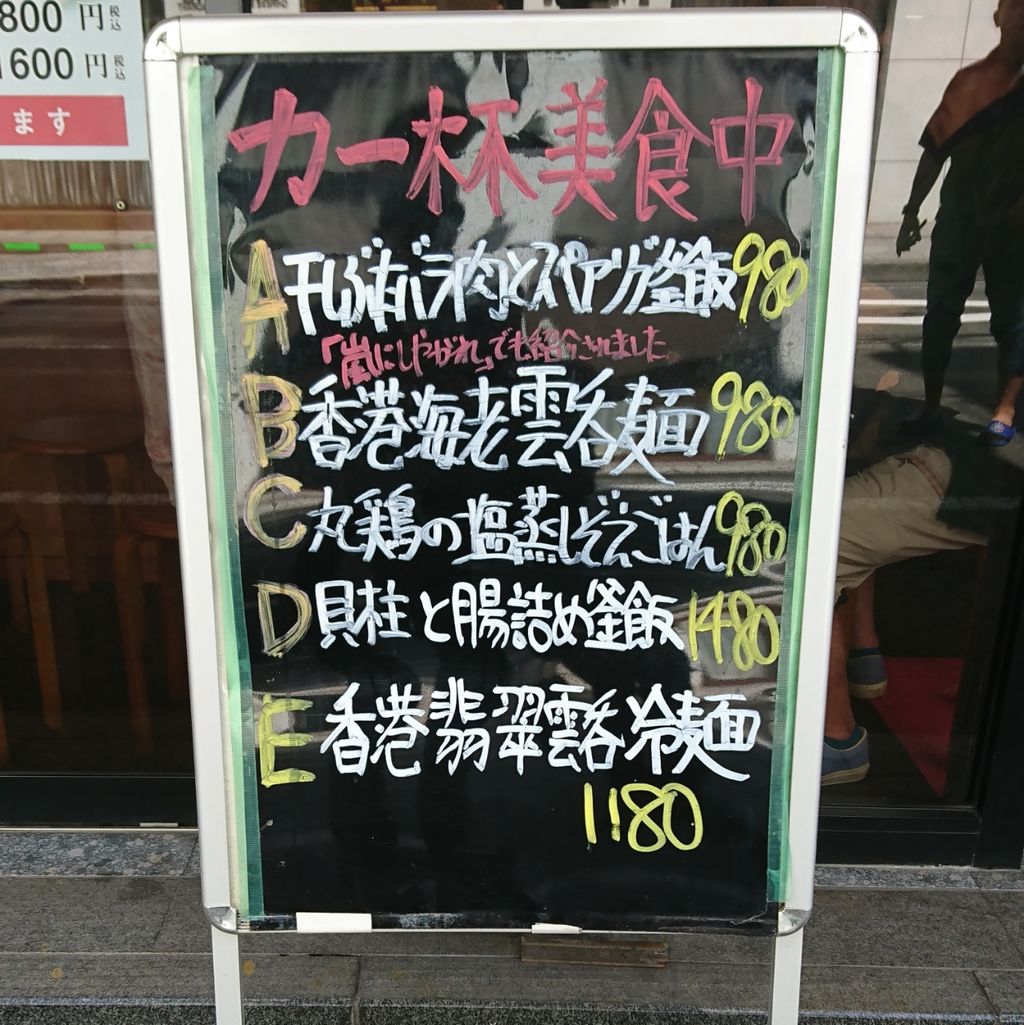 800円税込
1600円税込
ます
力一杯美食中
A 干し豚バラ肉とスペアリブ釜飯 980
「嵐にしやがれ」でも紹介されました
B 香港海老雲呑麺 980
C 丸鶏の塩蒸しぞえごはん 980
D 貝柱と腸詰め釜飯 1480
E 香港翡翠雲呑冷麺
1180